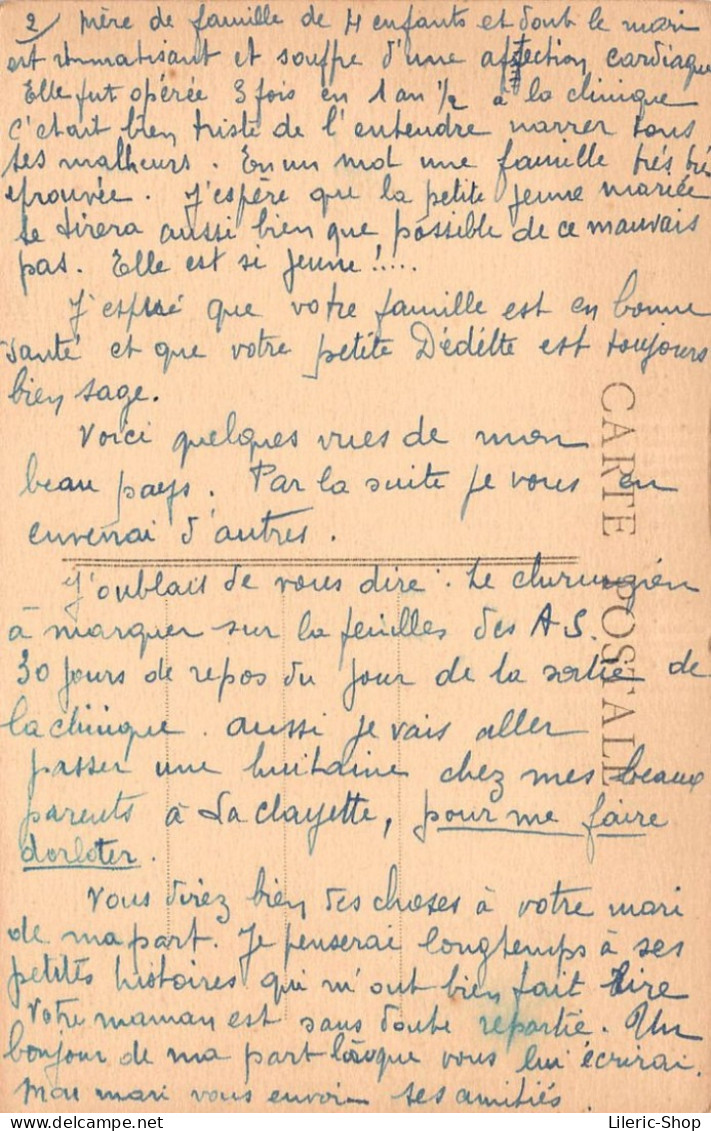 2/ Mère de famille de 4 enfants et dont le mari
est rhumatisant et souffre d'une affection cardiaque
Elle fut opérée 3 fois en 1 an 1/2 à la clinique
c'était bien triste de l'entendre narrer tous
ses malheurs. En un mot une famille très très
éprouvée. J'espère que la petite jeune mariée
se tirera aussi bien que possible de ce mauvais
pas. Elle est si jeune !....
J'espère que votre famille est en bonne
santé et que votre petite Dédette est toujours
bien sage.
Voici quelques vues de mon
beau pays. Par la suite je vous en
enverrai d'autres.
J'oubliais de vous dire : Le chirurgien
à marquer sur la feuilles des A.S.
30 jours de repos du jour de la sortie de
la clinique. aussi je vais aller
passer une huitaine chez mes beaux
parents à La clayette, pour me faire
dorloter.
Vous direz bien des choses à votre mari
de ma part. Je penserai longtemps à ses
petites histoires qui m'ont bien fait rire
Votre maman est sans doute repartie. Un
bonjour de ma part lorsque vous lui écrirai.
Mon mari vous envoie ses amitiés.
CARTE POSTALE
Lileric-Shop